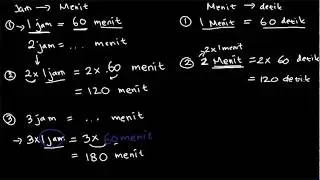 Jam → Menit
① 1 jam = 60 menit
2 jam = ... menit
② 2 x 1 jam = 2 x 60 menit
= 120 menit
③ 3 jam = ... menit
→ 3x1 jam = 3x 60 menit
= 180 menit
Menit → detik
① 1 Menit = 60 detik
2x 1 menit
② 2 Menit = 2x 60 detik
= 120 detik